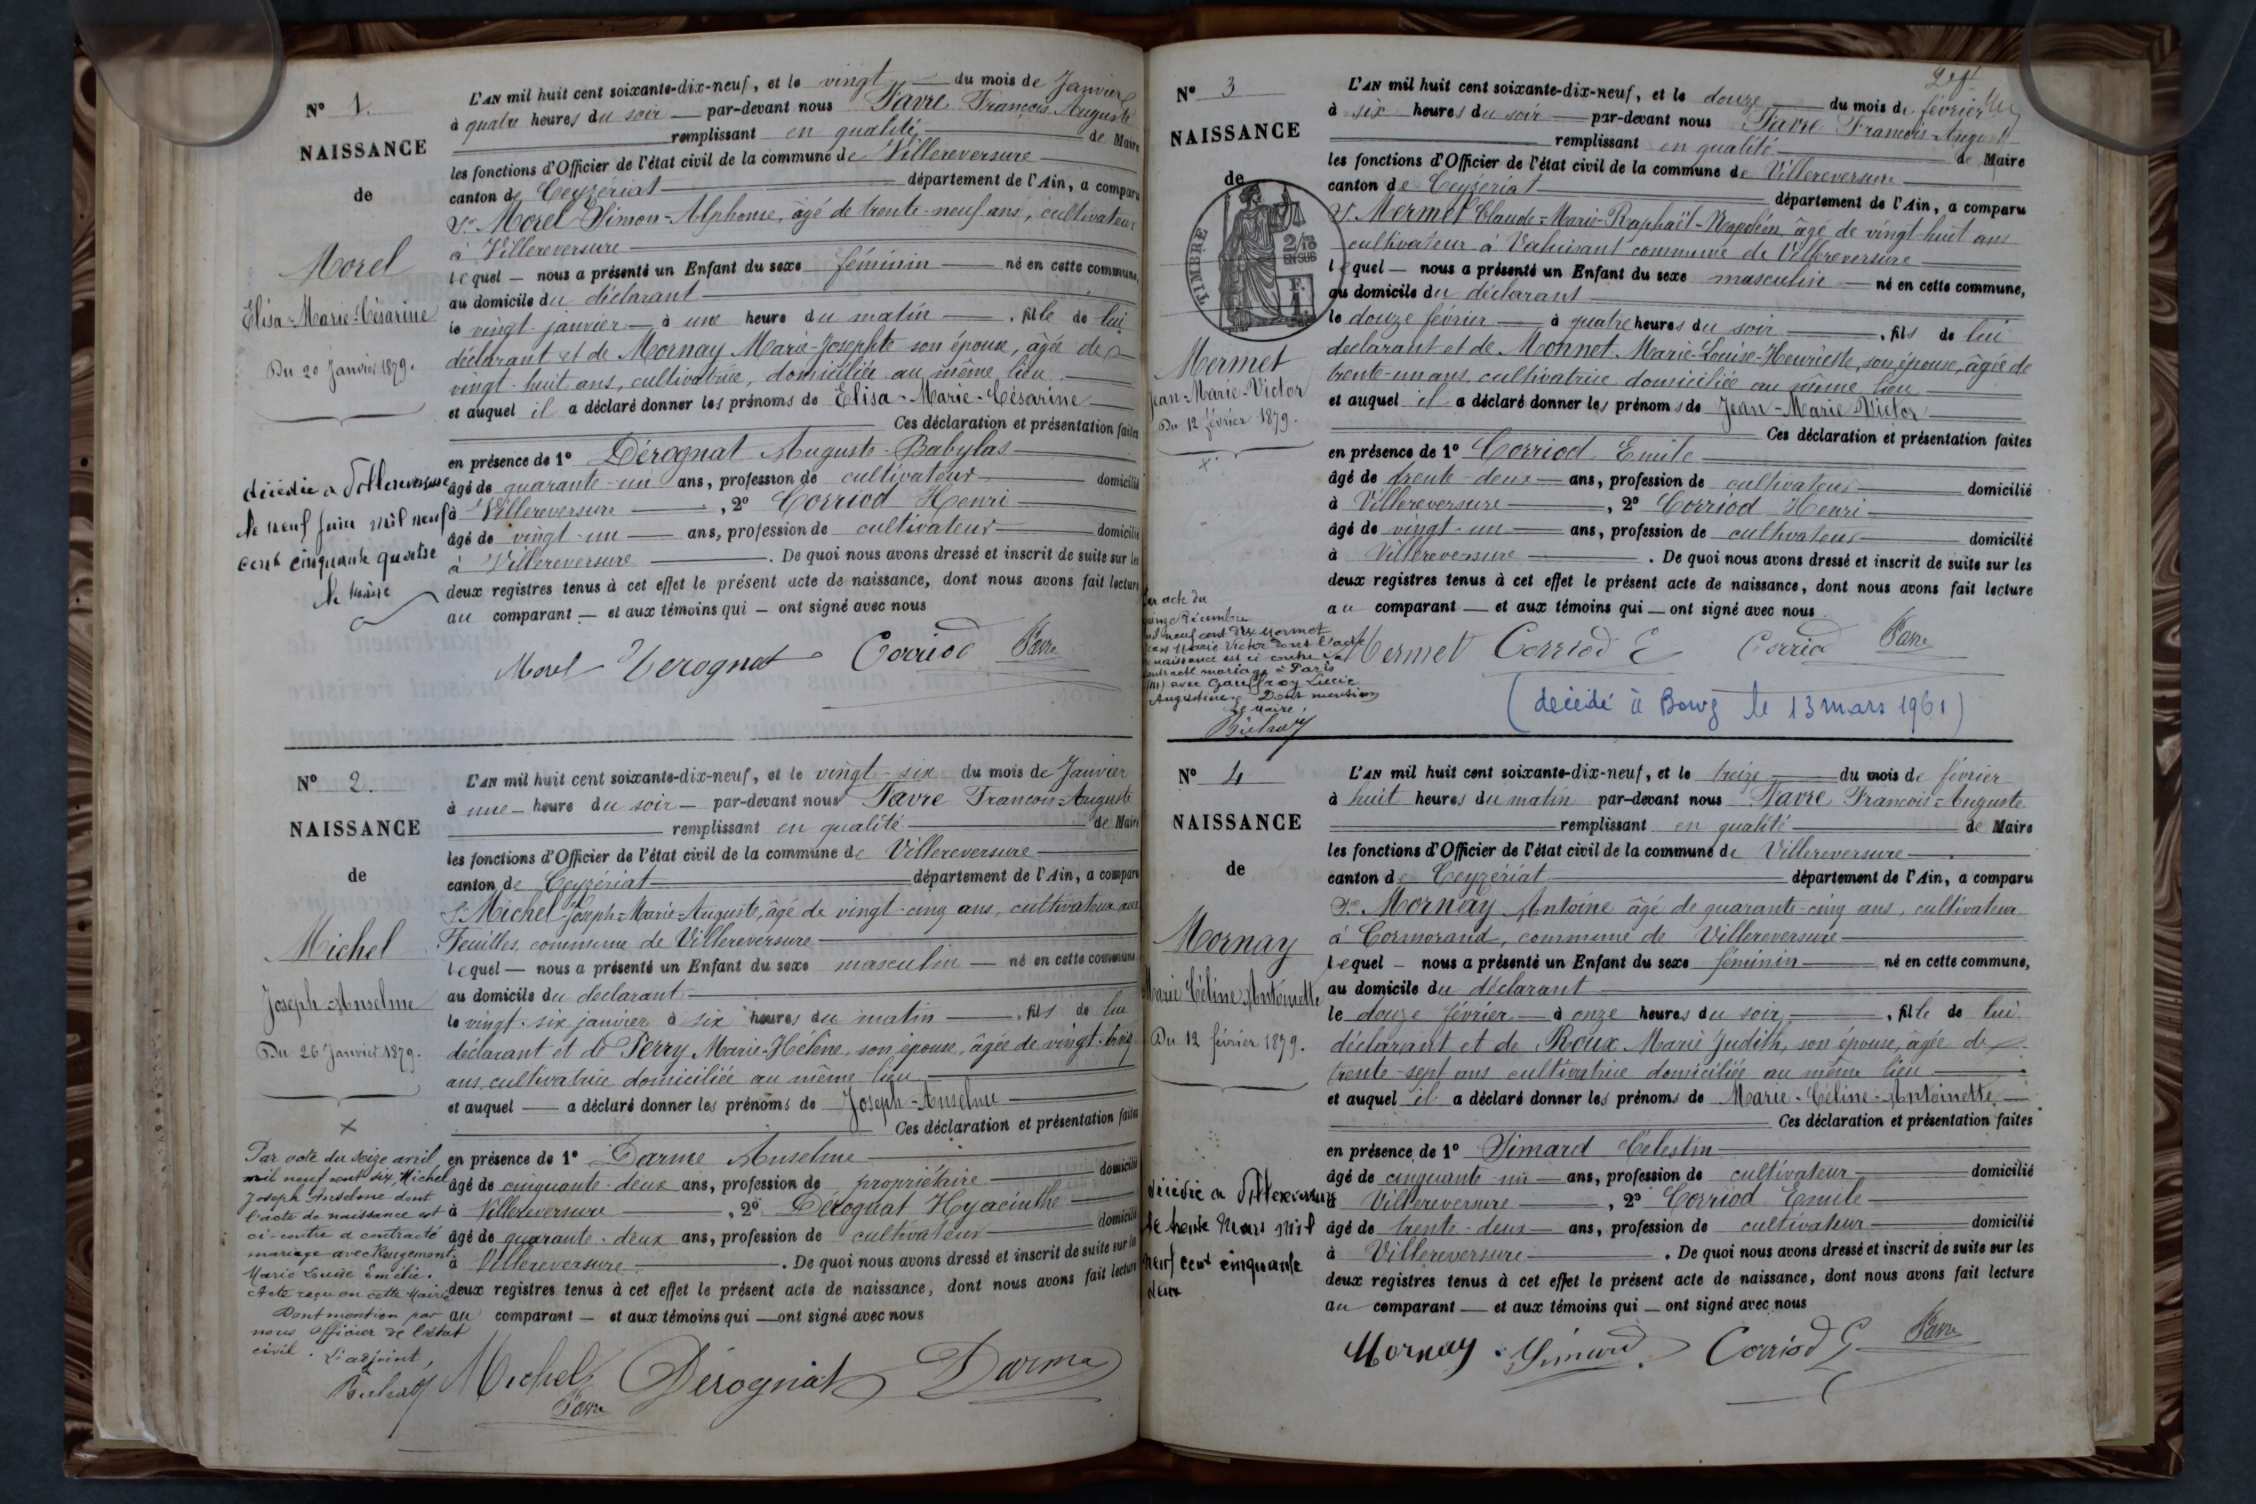 N° 1.
NAISSANCE
de
Morel
Elisa-Marie-Césarine
Du 20 Janvier 1879.
décédée a Villereversure
le neuf juin mil neuf
cent cinquante quatre
le maire
L'AN mil huit cent soixante-dix-neuf, et le vingt du mois de Janvier
à quatre heures du soir par-devant nous Favre François Auguste
remplissant en qualité de Maire
les fonctions d'Officier de l'état civil de la commune de Villereversure
canton de Ceyzériat département de l'Ain, a comparu
Sr. Morel Simon-Alphonse, âgé de trente-neuf ans, cultivateur
à Villereversure
lequel — nous a présenté un Enfant du sexe féminin né en cette commune,
au domicile du déclarant
le vingt janvier à une heure du matin, fille de lui
déclarant et de Mornay Marie-Josephte son épouse, âgée de
vingt-huit ans, cultivatrice, domiciliée au même lieu
et auquel il a déclaré donner les prénoms de Elisa-Marie-Césarine
Ces déclaration et présentation faites
en présence de 1° Dérognat Auguste-Babylas
âgé de quarante-un ans, profession de cultivateur domicilié
à Villereversure, 2° Corriod Henri
âgé de vingt-un ans, profession de cultivateur domicilié
à Villereversure. De quoi nous avons dressé et inscrit de suite sur les
deux registres tenus à cet effet le présent acte de naissance, dont nous avons fait lecture
au comparant — et aux témoins qui — ont signé avec nous
Morel Derognat Corriod Favre
N° 2.
NAISSANCE
de
Michel
Joseph-Anselme
Du 26 Janvier 1879.
x
Par acte du seize avril
mil neuf cent six, Michel
Joseph Anselme dont
l'acte de naissance est
ci-contre a contracté
mariage avec Rougemont
Marie Louise Emélie.
Acte reçu en cette Mairie
Dont mention par
nous Officier de l'état
civil. L'adjoint,
L'AN mil huit cent soixante-dix-neuf, et le vingt-six du mois de Janvier
à une heure du soir — par-devant nous Favre François-Auguste
remplissant en qualité de Maire
les fonctions d'Officier de l'état civil de la commune de Villereversure
canton de Ceyzériat département de l'Ain, a comparu
Sr. Michel Joseph-Marie-Auguste, âgé de vingt-cinq ans, cultivateur aux
Feuilles, commune de Villereversure
lequel — nous a présenté un Enfant du sexe masculin — né en cette commune
au domicile du declarant
le vingt-six janvier à six heures du matin, fils de lui
déclarant et de Perry Marie-Hélène, son épouse, âgée de vingt-trois
ans, cultivatrice domiciliée au même lieu
et auquel — a déclaré donner les prénoms de Joseph-Anselme
Ces déclaration et présentation faites
en présence de 1° Darme Anselme
âgé de cinquante-deux ans, profession de propriétaire domicilié
à Villereversure, 2° Dérognat Hyacinthe
âgé de quarante-deux ans, profession de cultivateur domicilié
à Villereversure. De quoi nous avons dressé et inscrit de suite sur les
deux registres tenus à cet effet le présent acte de naissance, dont nous avons fait lecture
au comparant — et aux témoins qui — ont signé avec nous
Michel Dérognat Darme
Favre
N° 3
NAISSANCE
de
TIMBRE
2/10
EN SUS
Mermet
Jean-Marie-Victor
Du 12 février 1879.
Par acte du
quinze Décembre
mil neuf cent dix Mermet
Jean Marie Victor dont l'acte
de naissance est ci contre a
contracté mariage à Paris
avec Gauffroy Lucie
Augustine. Dont mention
Le Maire,
L'AN mil huit cent soixante-dix-neuf, et le douze du mois de février
à six heures du soir par-devant nous Favre François-Auguste
remplissant en qualité de Maire
les fonctions d'Officier de l'état civil de la commune de Villereversure
canton de Ceyzériat département de l'Ain, a comparu
Sr. Mermet Claude-Marie-Raphaël-Napoléon âgé de vingt-huit ans
cultivateur à Valuisant commune de Villereversure
lequel — nous a présenté un Enfant du sexe masculin né en cette commune,
au domicile du déclarant
le douze février à quatre heures du soir, fils de lui
declarant et de Monnet Marie-Louise-Henriette, son épouse, âgée de
trente-un ans, cultivatrice domiciliée au même lieu
et auquel il a déclaré donner les prénoms de Jean-Marie-Victor
Ces déclaration et présentation faites
en présence de 1° Corriod Emile
âgé de trente-deux ans, profession de cultivateur domicilié
à Villereversure, 2° Corriod Henri
âgé de vingt-un ans, profession de cultivateur domicilié
à Villereversure. De quoi nous avons dressé et inscrit de suite sur les
deux registres tenus à cet effet le présent acte de naissance, dont nous avons fait lecture
au comparant — et aux témoins qui — ont signé avec nous
Mermet Corriod E Corriod Favre
(décédé à Bourg le 13 mars 1961)
N° 4
NAISSANCE
de
Mornay
Marie Céline Antoinette
Du 12 février 1879.
décédée a Villereversure
le trente Mars mil
neuf cent cinquante
deux
L'AN mil huit cent soixante-dix-neuf, et le treize du mois de février
à huit heures du matin par-devant nous Favre François-Auguste
remplissant en qualité de Maire
les fonctions d'Officier de l'état civil de la commune de Villereversure
canton de Ceyzériat département de l'Ain, a comparu
Sr. Mornay Antoine âgé de quarante-cinq ans, cultivateur
à Cormorand, commune de Villereversure
lequel — nous a présenté un Enfant du sexe féminin né en cette commune,
au domicile du déclarant
le douze février à onze heures du soir, fille de lui
déclarant et de Roux Marie Judith, son épouse, âgée de
trente-sept ans cultivatrice domiciliée au même lieu
et auquel il a déclaré donner les prénoms de Marie-Céline-Antoinette
Ces déclaration et présentation faites
en présence de 1° Simard Célestin
âgé de cinquante-un ans, profession de cultivateur domicilié
à Villereversure, 2° Corriod Emile
âgé de trente-deux ans, profession de cultivateur domicilié
à Villereversure. De quoi nous avons dressé et inscrit de suite sur les
deux registres tenus à cet effet le présent acte de naissance, dont nous avons fait lecture
au comparant — et aux témoins qui — ont signé avec nous
Mornay Simard Corriod E Favre